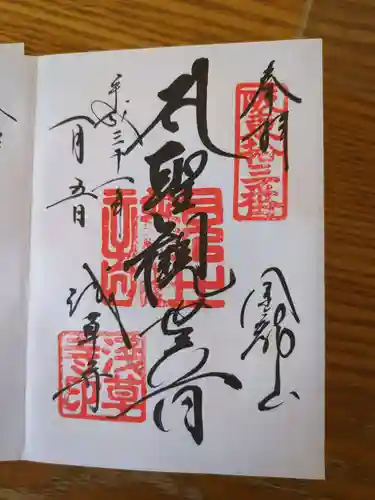 奉拝
坂東拾三番
金龍山
聖観世音
平成三十一年
一月五日
浅草寺
浅草寺印